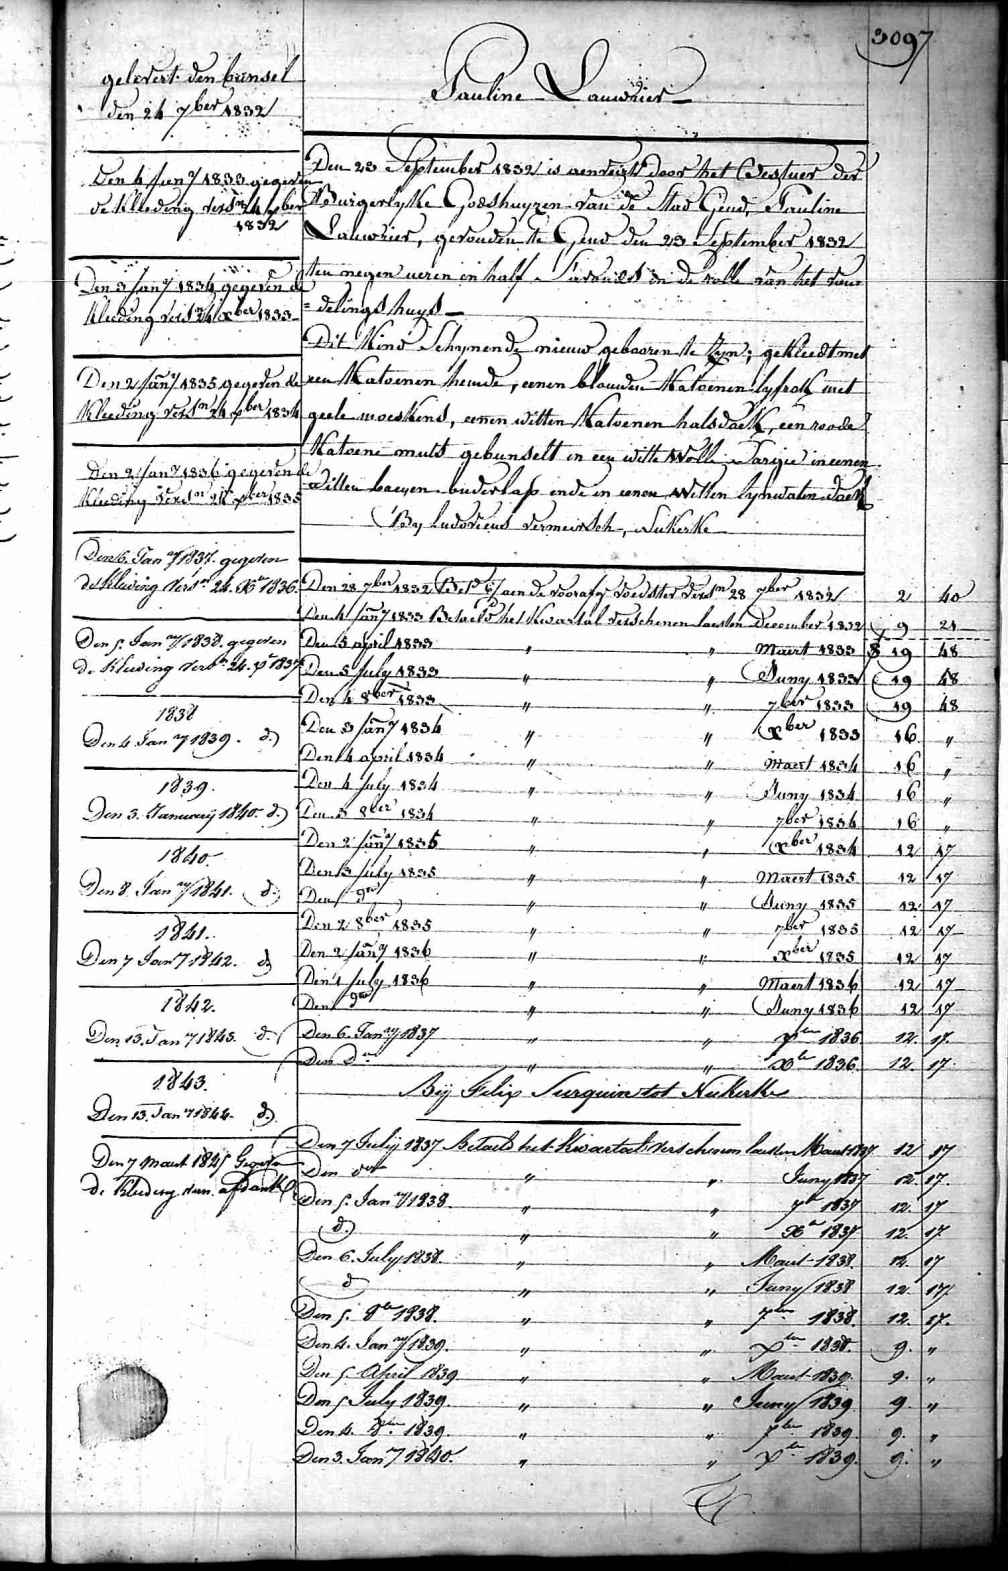 3097
Pauline Lauwrier
gelevert den bunsel
den 24 7ber 1832
Den 4 Jany 1833 gegeven
de Kleeding versn 24 xber
1832
Den 3 Jany 1834 gegeven de
Kleeding versn 24 xber 1833
Den 2 Jany 1835 gegeven de
Kleeding versn 24 xber 1834
Den 2 Jany 1836 gegeven de
Kleeding versn 24 xber 1835
Den 6. Jany 1837. gegeven
de Kleeding versn 24. Xr 1836.
Den 5. Jany 1838. gegeven
de Kleeding versn 24. Xr 1837
1838
Den 4 Jany 1839. d.)
1839.
Den 3. January 1840. d.)
1840.
Den 8. Jany 1841. d.)
1841.
Den 7 Jany 1842. d)
1842.
Den 13. Jany 1843. d.
1843.
Den 13. Jany 1844. d.)
Den 7 Maart 1845 Gegeven
de Kleeding
Den 23 September 1832 is aenveirdt door het Bestuer der
Burgerlyke Godshuyzen van de Stad Gend, Pauline
Lauwrier, gevonden te Gend den 23 September 1832
ten negen ueren en half S'avonds in de rolle van het vou-
=delings huys
Dit Kind Schynende nieuw gebooren te Zyn; gekleedt met
een Katoenen hemde, eenen blauwen Katoenen lyfrok met
geele moeskens, eenen witten Katoenen halsdoek, een roode
Katoene muts gebunselt in een witte Wolle Sargie in eenen
witten baeyen onderlap ende in eenen witten lynwaten doek
By Ludovicus Vermeirsch, Nukerke
Den 28 7ber 1832 aen de voorafg voedster versn 28 7ber 1832 2 40
Den 4 Jany 1833 Betaeld het Kwartal verschenen laesten December 1832 9 21
Den 5 april 1833 " " Maert 1833 19 48
Den 5 July 1833 " " Juny 1833 19 48
Den 4 8ber 1833 " " 7ber 1833 19 48
Den 3 Jany 1834 " " Xber 1833 16 "
Den 4 april 1834 " " Maert 1834 16 "
Den 4 July 1834 " " Juny 1834 16 "
Den 3 8ber 1834 " " 7ber 1834 16 "
Den 2 Jany 1835 " " Xber 1834 12 17
Den 3 July 1835 " " Maert 1835 12 17
Den do " " Juny 1835 12 17
Den 2 8ber 1835 " " 7ber 1835 12 17
Den 2 Jany 1836 " " xber 1835 12 17
Den 1 July 1836 " " Maert 1836 12 17
Den do " " Juny 1836 12 17
Den 6. Jany 1837 " " 7ber 1836 12. 17.
Den do " " Xbr 1836 12. 17.
Bij Felix Surquin tot Nukerke
Den 7 Julij 1837 Betaeld het Kwartaal verschenen laesten Maart 1837 12 17
Den do " " Juny 1837 12. 17.
Den 5. Jany 1838. " " 7br 1837 12. 17
d.) " " Xbr 1837 12. 17.
Den 6. July 1838. " " Maart 1838. 12. 17
d " " Juny 1838 12. 17.
Den 5. 8br 1838. " " 7ber 1838. 12. 17.
Den 4. Jany 1839. " " Xber 1838. 9. "
Den 5. April 1839 " " Maart 1839. 9. "
Den 5 July 1839. " " Juny 1839 9. "
Den 4. 8br 1839. " " 7ber 1839 9. "
Den 3. Jany 1840. " " Xbr 1839. 9. "